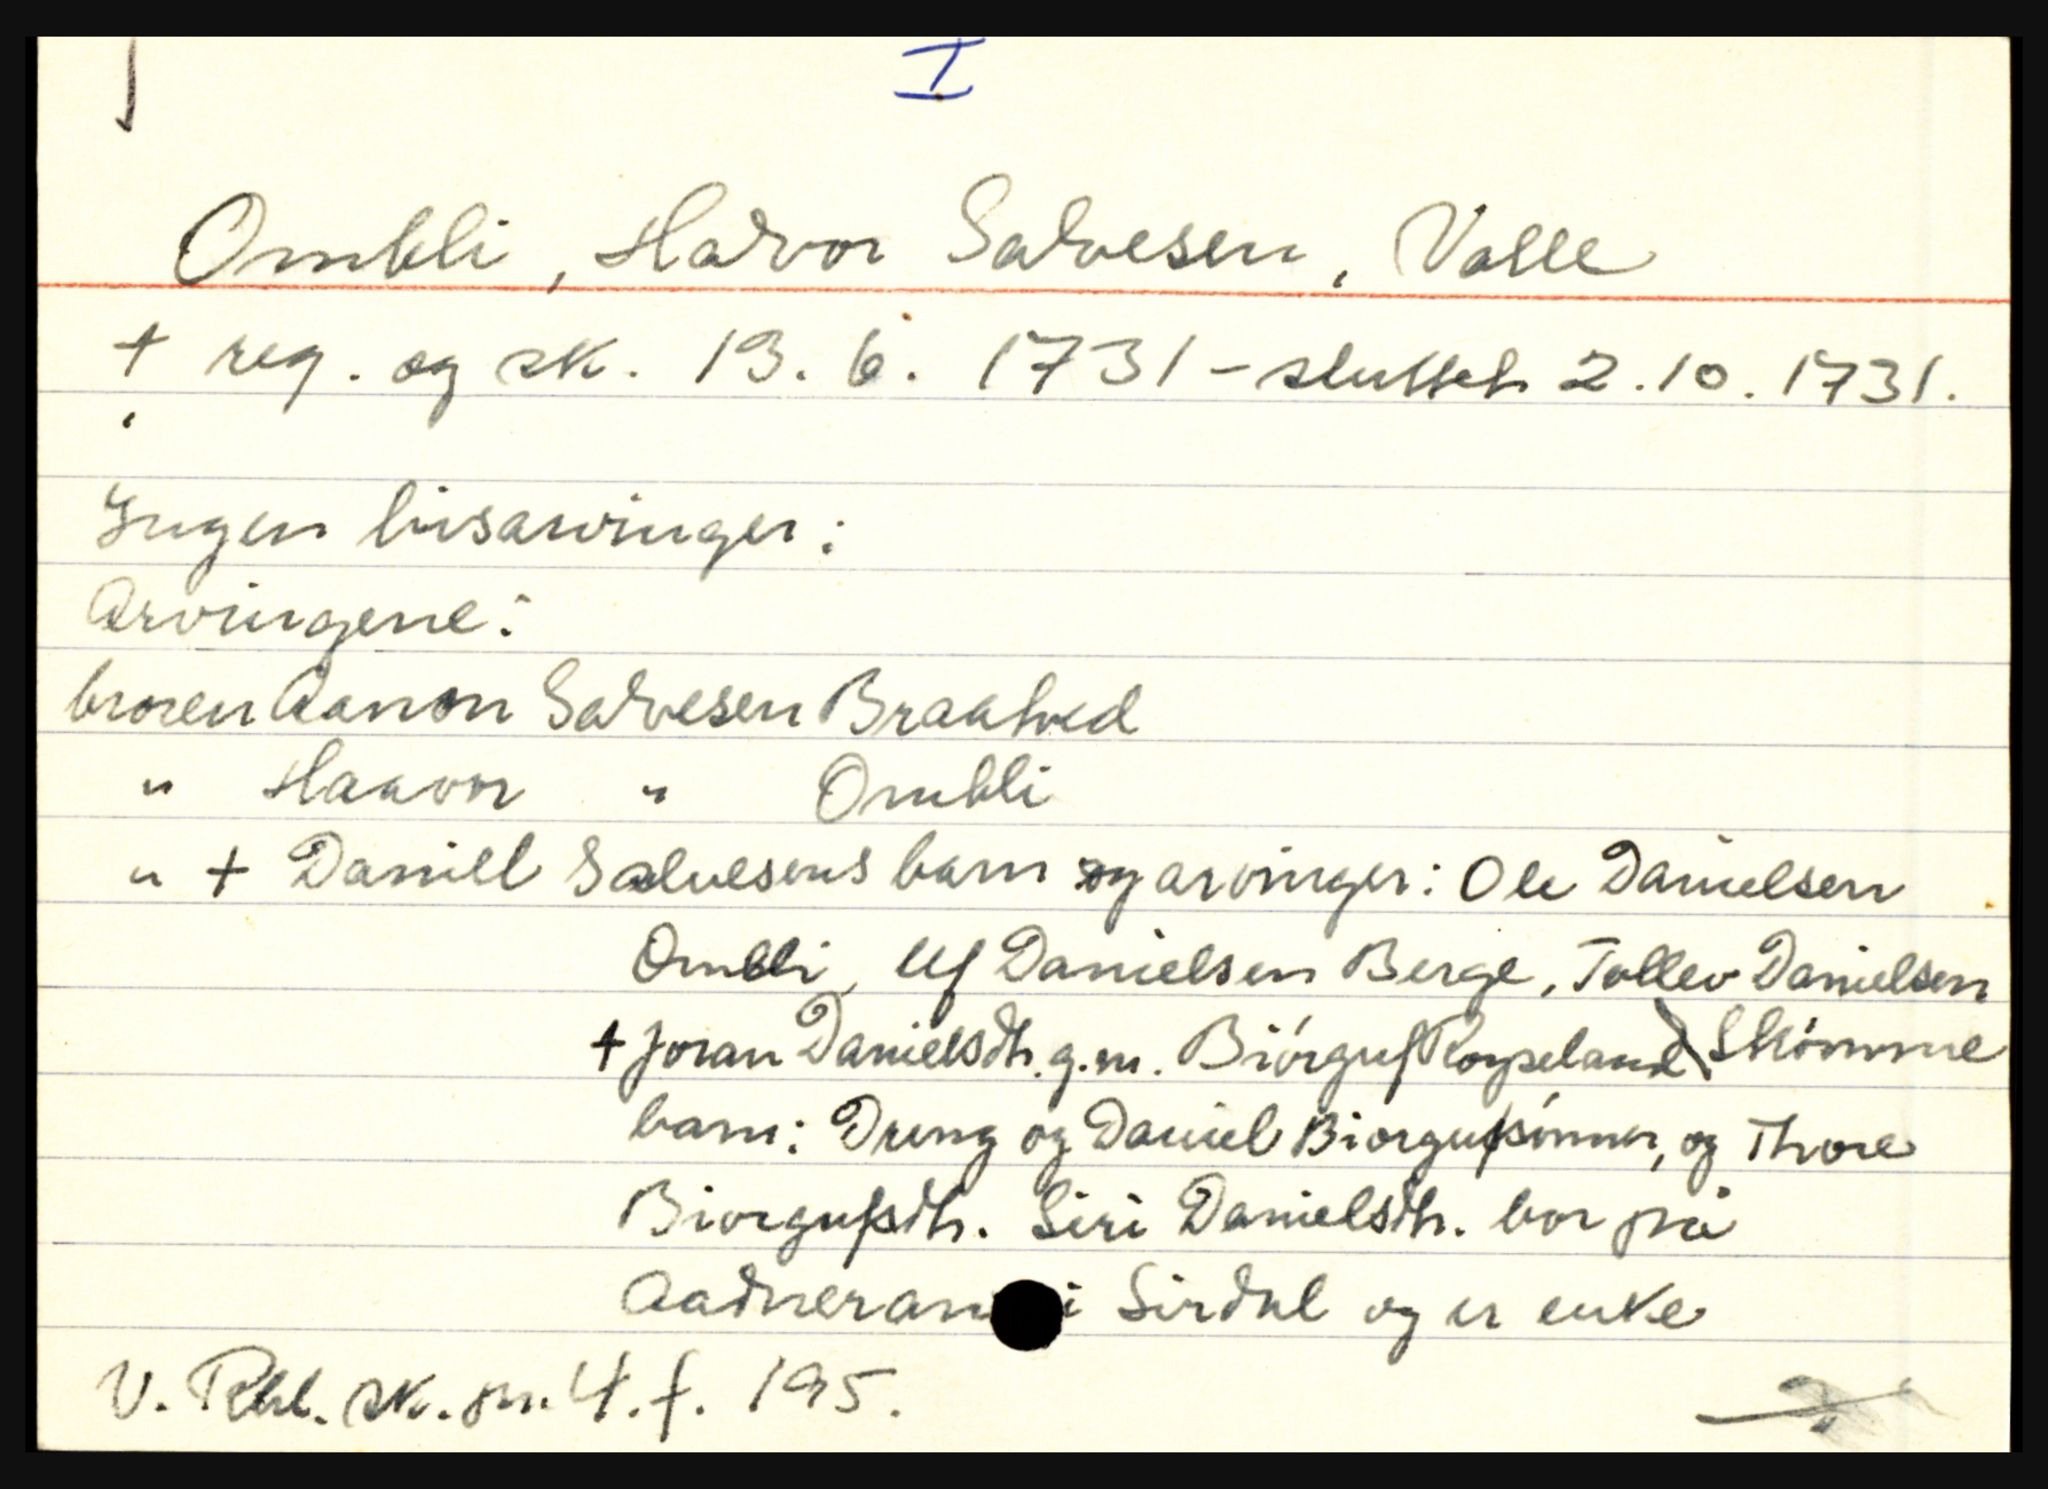 I
Ombli, Halvor Salvesen, Valle
† reg. og sk. 13. 6. 1731 - sluttet 2.10.1731.
Ingen livsarvinger:
Arvingene:
broren Aanon Salvesen Braatved
" Haavor " Ombli
" † Daniel Salvesens barn og arvinger: Ole Danielsen
Ombli, Ulf Danielsen Berge, Tollev Danielsen
† Joran Danielsdtr. g.m. Biórguf Royseland Skómme
barn: Dreng og Daniel Biorgufsónner, og Thore
Biorgufsdtr. Siri Danielsdtr. bor på
Aadneram i Sirdal og er enke
V. Rbl. sk. pr. 4. f. 195.